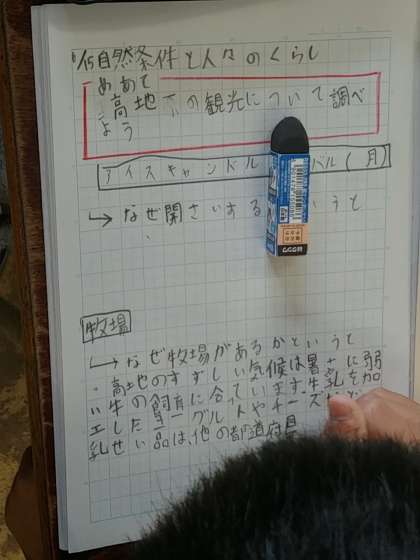 6/15自然条件と人々のくらし
めあて
高地の観光について調べ
よう
アイスキャンドル バル(月)
→なぜ開さいする いうと
牧場
→なぜ牧場があるかというと
・高地のすずしい気候は暑さに弱
い牛の飼育に合っています牛乳を加
工したヨーグルトやチーズなど
乳せい品は他の都道府県